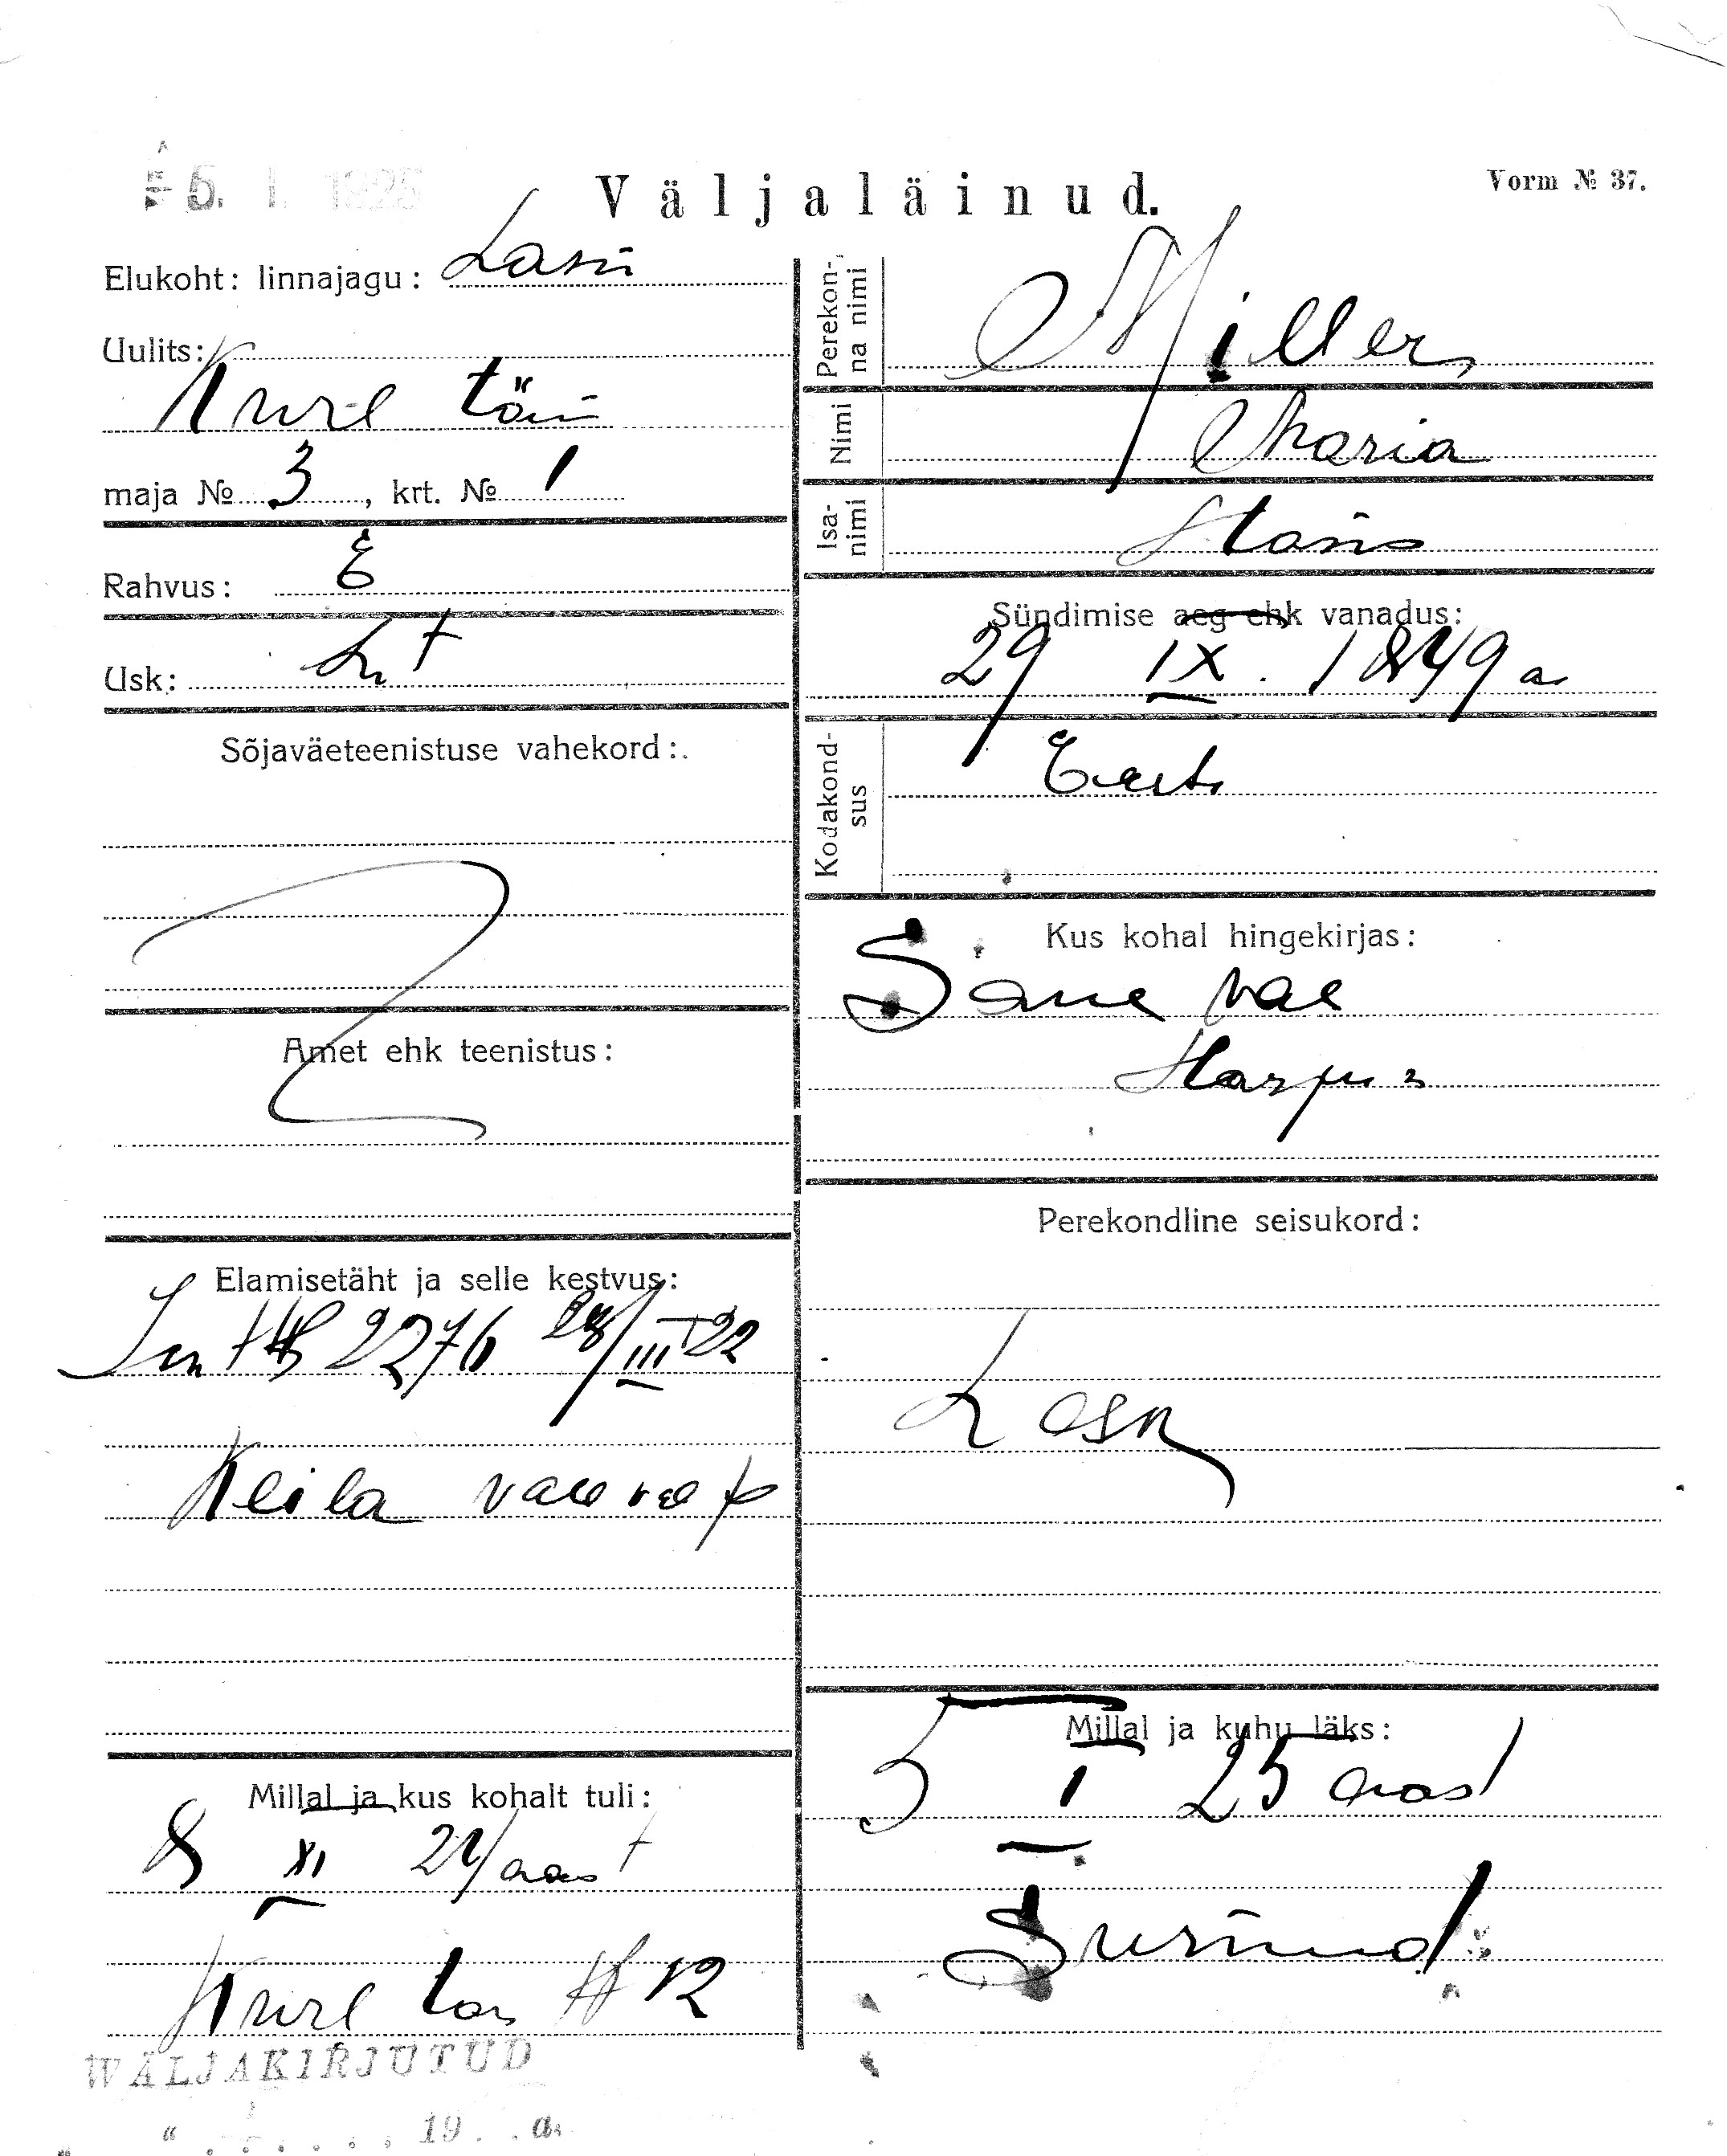 5. I. 1925
Väljaläinud.
Vorm № 37.
Elukoht: linnajagu:
Uulits:
Kure tän
maja № 3, krt. № 1
Rahvus: E
Usk: Lut
Sõjaväeteenistuse vahekord:
Amet ehk teenistus:
Elamisetäht ja selle kestvus:
2276 28/III 22
Keila
Millal ja kus kohalt tuli:
8 XI 24 aast
Kure tän № 12
WÄLJAKIRJUTUD
" . . . . . . 19 . . a.
Perekonna nimi
Miller,
Nimi
Maria
Isanimi
Hans
Sündimise aeg ehk vanadus:
29 IX. 1849 a
Kodakondsus
Eesti
Kus kohal hingekirjas:
Saue val
Harju
Perekondline seisukord:
Lesk
Millal ja kuhu läks:
5 I 25 aast
Surnud